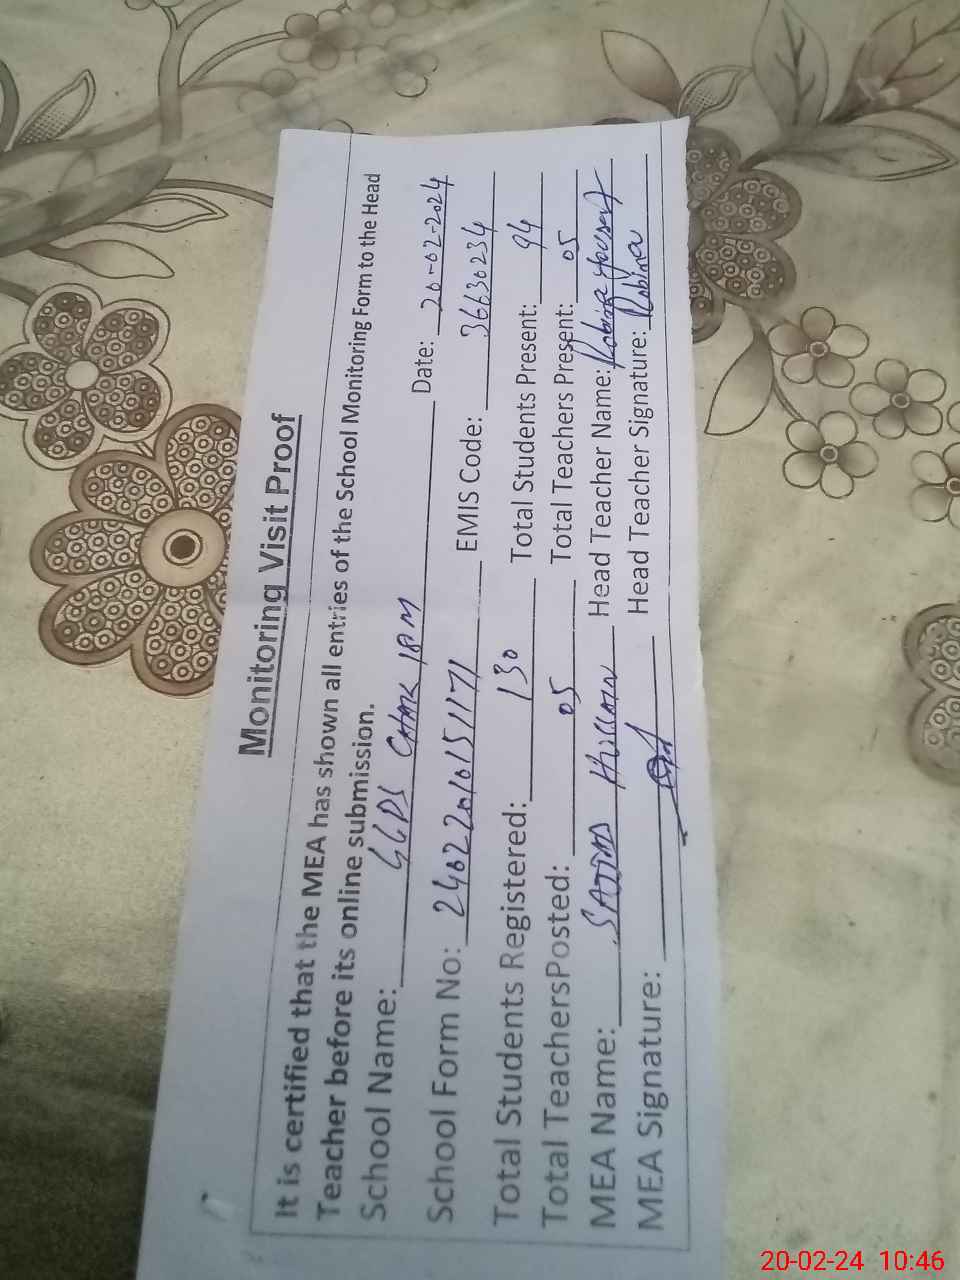 Monitoring Visit Proof
It is certified that the MEA has shown all entries of the School Monitoring Form to the Head
Teacher before its online submission.
School Name: GGPS CHAK 18M Date: 20-02-2024
School Form No: 240222010151171 EMIS Code: 36630234
Total Students Registered: 130 Total Students Present: 94
Total TeachersPosted: 05 Total Teachers Present: 05
MEA Name: SAJJAD HUSSAIN Head Teacher Name: Robina Yousaf
MEA Signature: Head Teacher Signature: Robina
20-02-24 10:46